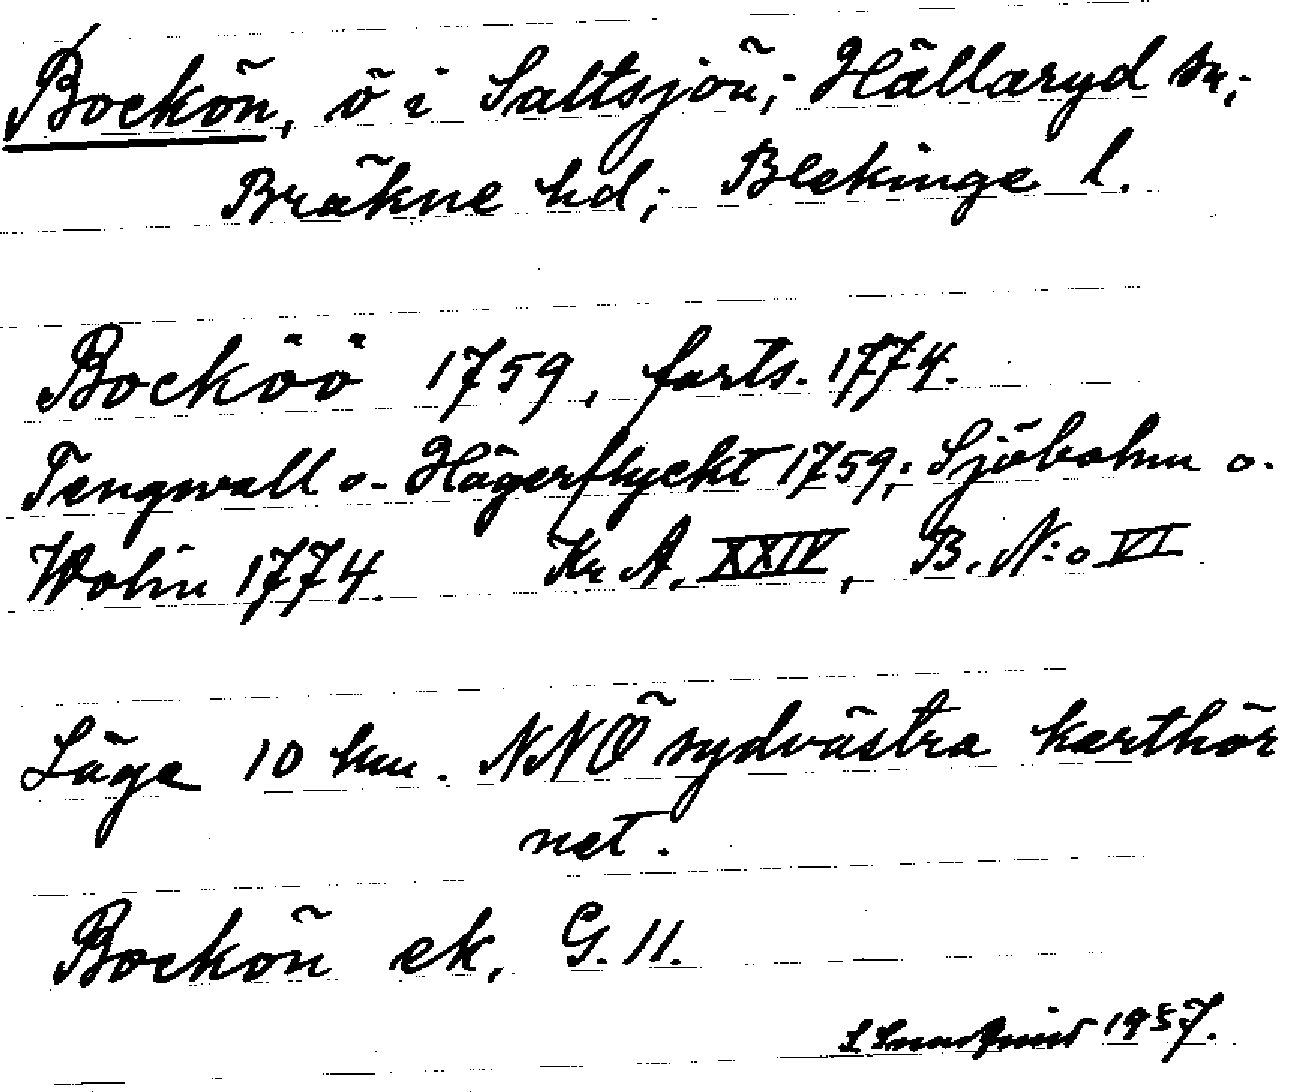 Bockön, ö i Saltsjön; Hällaryd sn;
Bräkne hd; Blekinge l.
Bocköö 1759, farts. 1774.
Tengwall o. Hägerflyckt 1759; Sjöbohm o.
Wolin 1774. Kr A. XXIV, B. N:o VI
Läge 10 km. NNÖ sydvästra karthör
net.
Bockön ek. G. 11.
1957.